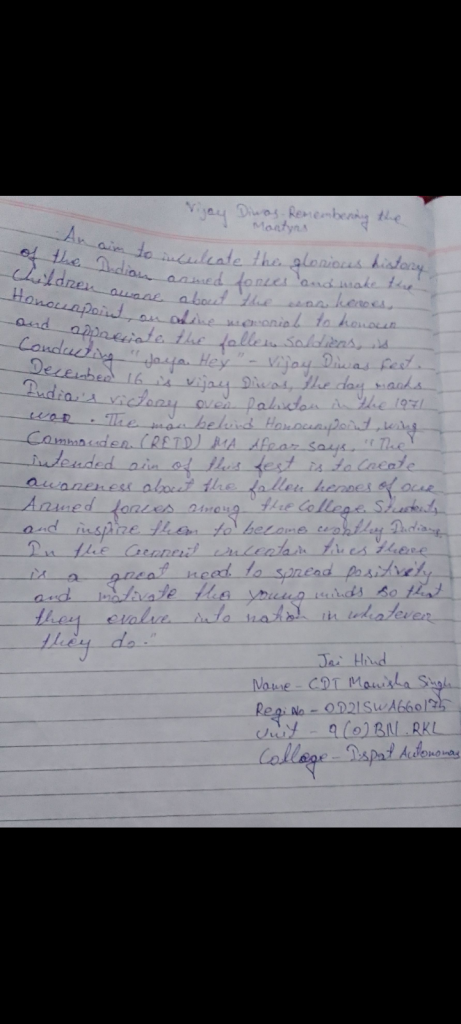 Vijay Diwas - Remembering the
Martyrs
An aim to inculcate the glorious history
of the Indian armed forces and make the
children aware about the war heroes,
Honourpoint, an online memorial to honour
and appreciate the fallen soldiers, is
Conducting "Jaya Hey" - Vijay Diwas fest.
December 16 is Vijay Diwas, the day marks
India's victory over Pakistan in the 1971
war. The man behind Honourpoint, wing
Commander (RETD) MA Afraz says, "The
intended aim of this fest is to create
awareness about the fallen heroes of our
Armed forces among the College Students
and inspire them to become worthy Indians
In the Current uncertain times there
is a great need to spread positivity
and motivate the young minds so that
they evolve into nation in whatever
they do."
Jai Hind
Name - CDT Manisha Singh
Reg. No - OD21SWA660175
Unit - 9 (O) BN. RKL
College - Ispat Autonomous